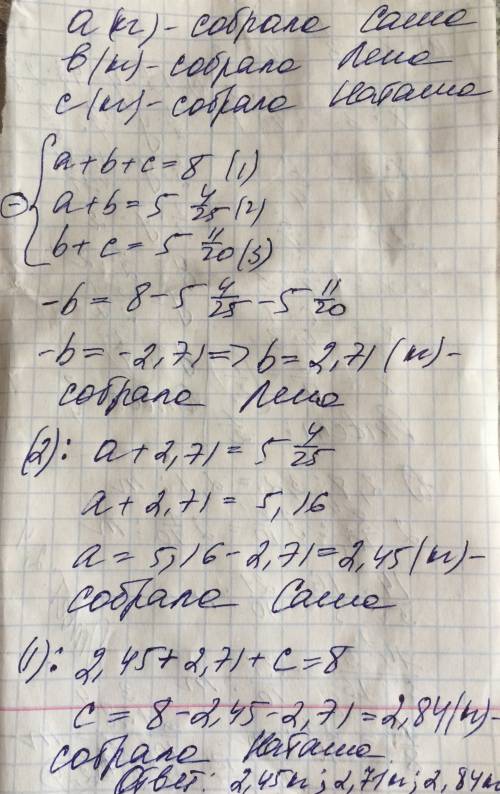 a (кг) - собрала Саша
b (кг) - собрала Лена
c (кг) - собрала Наташа
a + b + c = 8 (1)
a + b = 5 4/25 (2)
b + c = 5 11/20 (3)
-b = 8 - 5 4/25 - 5 11/20
-b = -2,71 => b = 2,71 (кг) -
собрала Лена
(2): a + 2,71 = 5 4/25
a + 2,71 = 5,16
a = 5,16 - 2,71 = 2,45 (кг) -
собрала Саша
(1): 2,45 + 2,71 + c = 8
c = 8 - 2,45 - 2,71 = 2,84 (кг) -
собрала Наташа
Ответ: 2,45кг; 2,71кг; 2,84кг